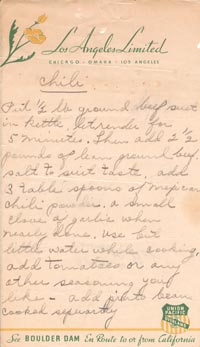 Los Angeles Limited
CHICAGO - OMAHA - LOS ANGELES
Chili
Put ½ lb ground beef suet
in kettle, let render for
5 minutes. Then add 2 ½
pounds of lean ground beef.
salt to suit taste. add
3 table spoons of mexican
chili powder, a small
clove of garlic when
nearly done. use but
little water while cooking,
add tomatoes or any
other seasoning you
like - add pinto beans
cooked separately
UNION
PACIFIC
See BOULDER DAM En Route to or from California